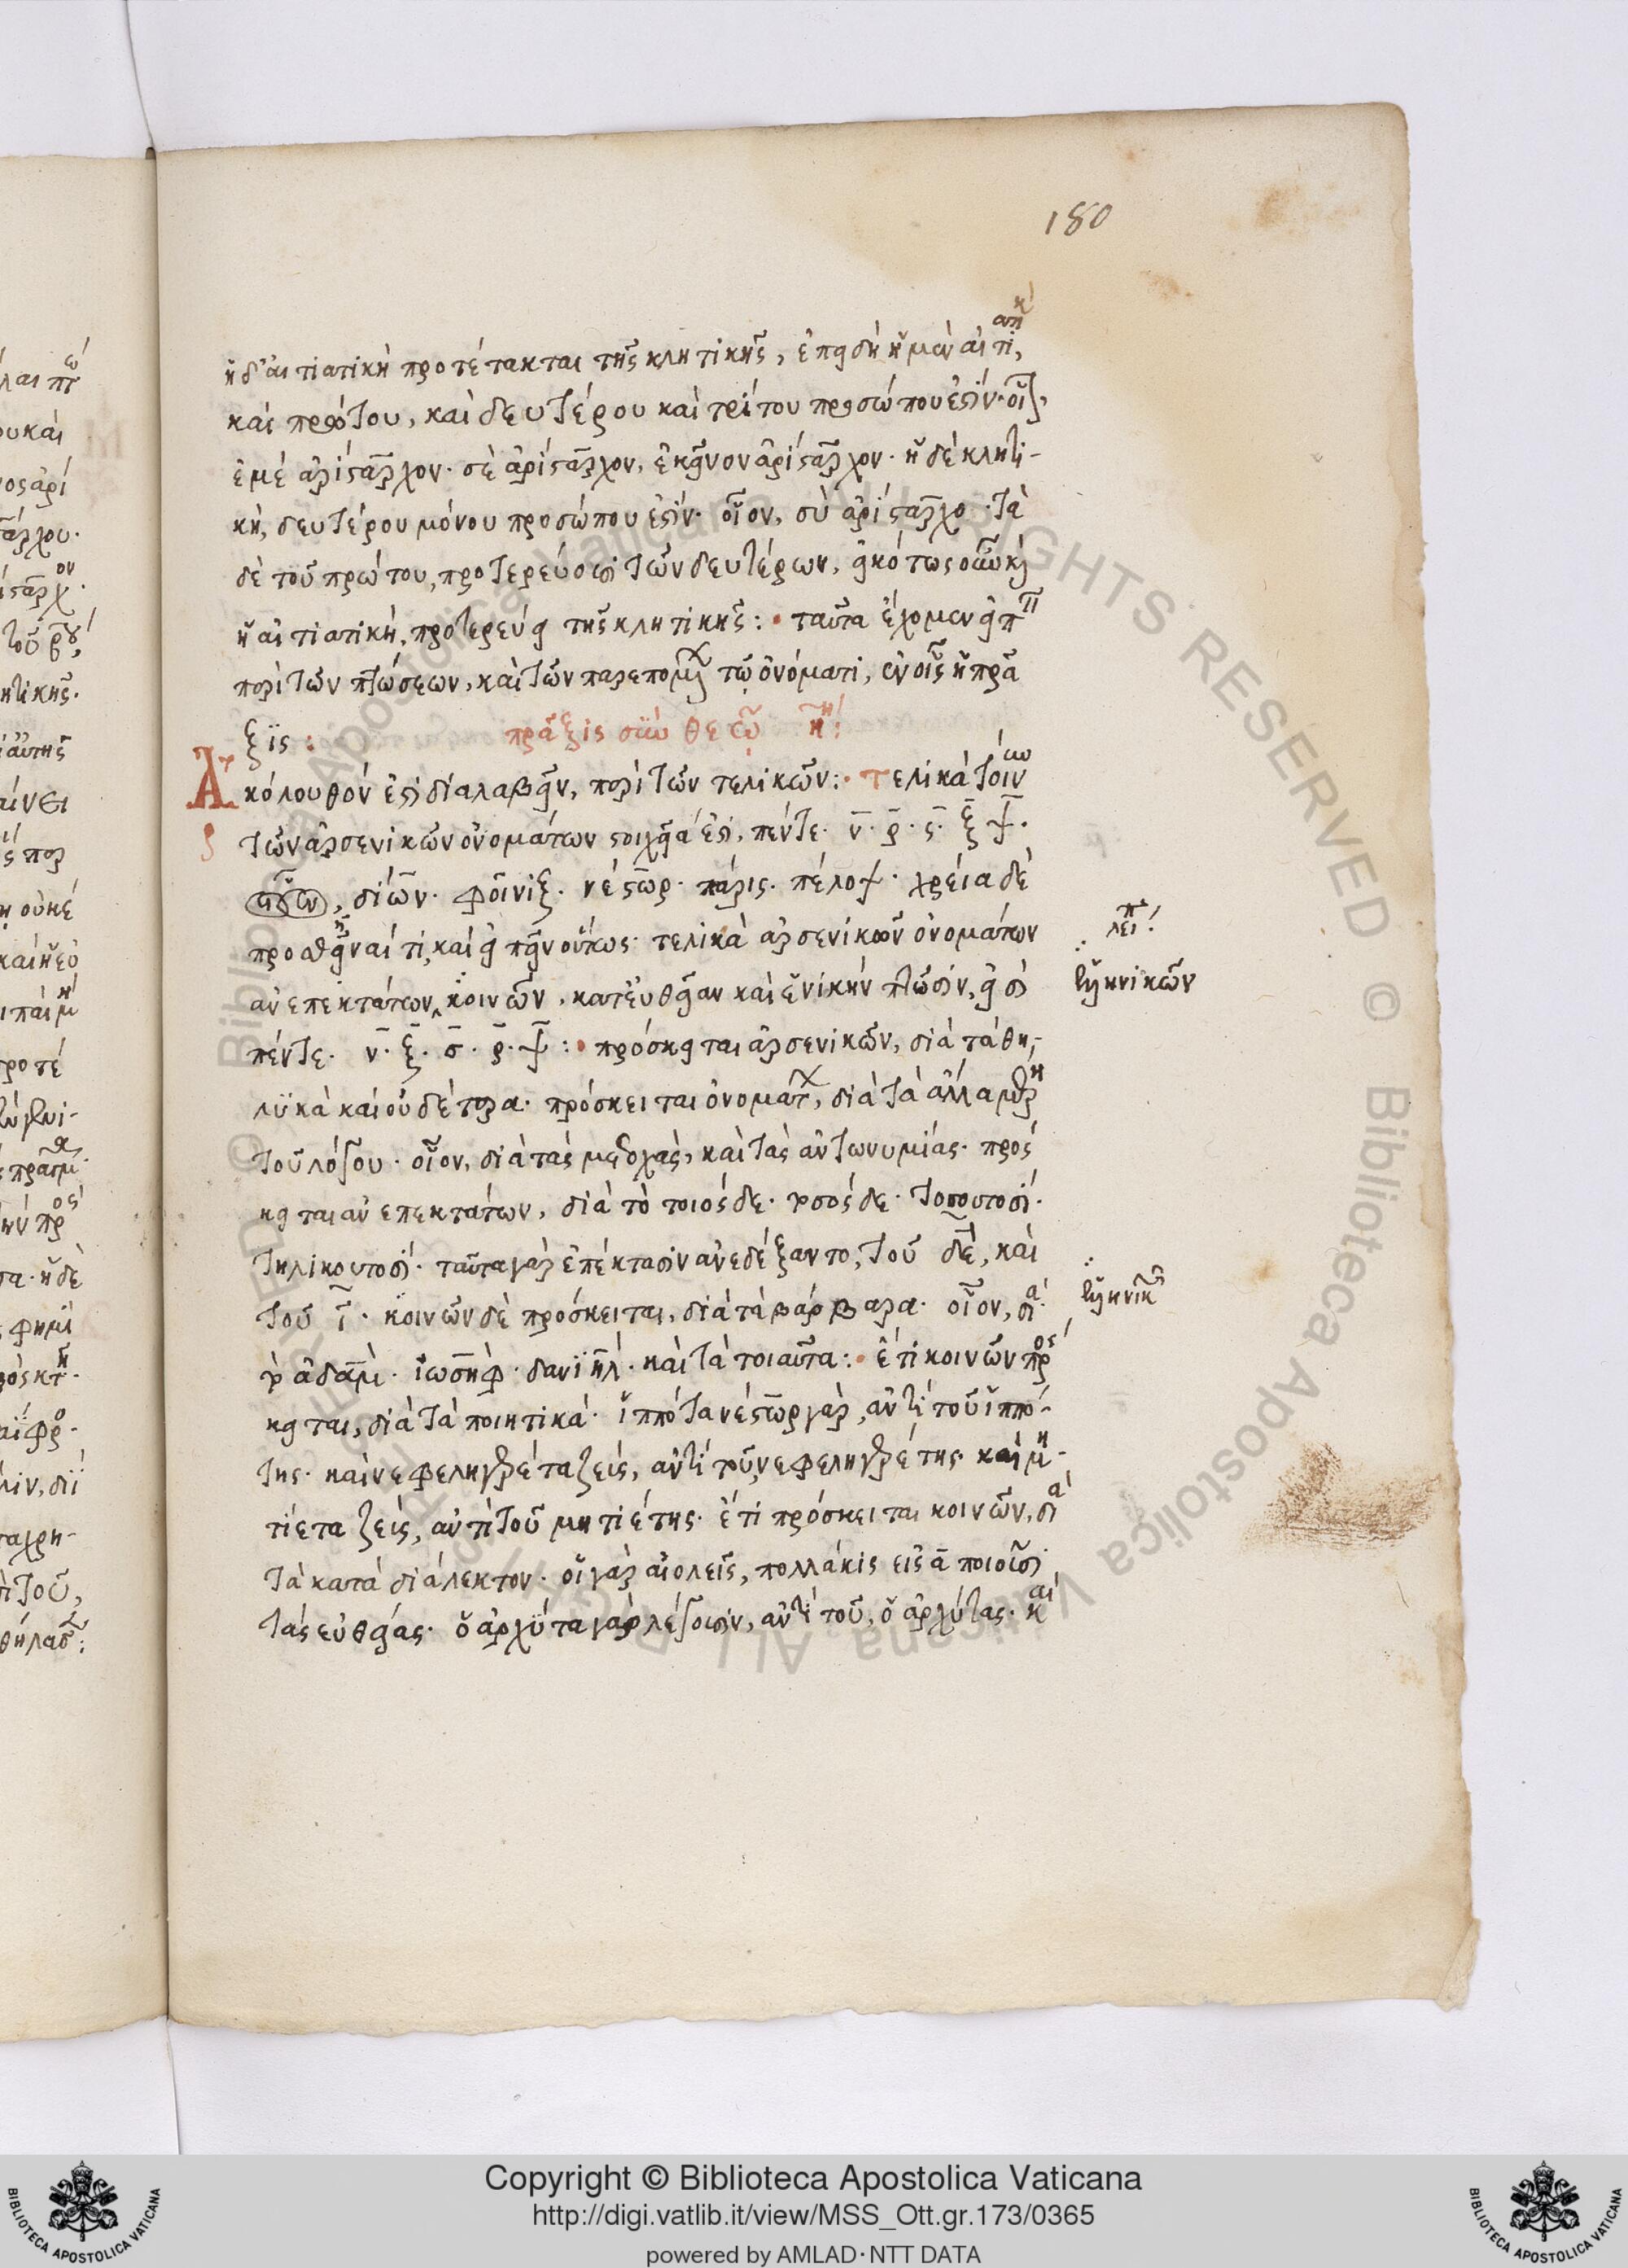 180
ἡ δ' αἰτιατικὴ προτέτακται τῆς κλητικῆς, ἐπειδὴ ἡ μὲν αἰτιατικὴ
καὶ πρώτου, καὶ δευτέρου καὶ τρίτου προσώπου ἐστίν· οἷον,
ἐμὲ ἀρίσταρχον· σὲ ἀρίσταρχον, ἐκεῖνον ἀρίσταρχον· ἡ δὲ κλητι-
κὴ, δευτέρου μόνου προσώπου ἐστίν· οἷον, σὺ ἀρίσταρχε· τὰ
δὲ τοῦ πρώτου, προτερεύουσι τῶν δευτέρων, εἰκότως οὖν καὶ
ἡ αἰτιατικὴ, προτερεύει τῆς κλητικῆς: ταῦτα ἔχομεν εἰπεῖν
περὶ τῶν πτώσεων, καὶ τῶν παρεπομένων τῷ ὀνόματι, ἐν οἷς ἡ πρᾶ
ξϊς: πρᾶξις σὺν θεῷ η:
Ἀκόλουθόν ἐστι διαλαβεῖν, περὶ τῶν τελικῶν: τελικὰ τοίνυν
τῶν ἀρσενικῶν ὀνομάτων στοιχεῖά ἐστι, πέντε· ν· ρ· ς· ξ ψ·
δίων· φοῖνιξ· νέστωρ· πάρις· πέλοψ· χρεία δὲ
προσθεῖναί τι, καὶ εἰπεῖν οὕτως· τελικὰ ἀρσενικῶν ὀνομάτων
ἀνεπεκτάτων, κοινῶν, κατ' εὐθεῖαν καὶ ἑνικὴν πτῶσιν, εἰσὶ
πέντε· ν· ξ· σ· ρ· ψ: πρόσκειται ἀρσενικῶν, διὰ τὰ θη-
λϋκὰ καὶ οὐδέτερα· πρόσκειται ὀνομάτων, διὰ τὰ ἄλλα μέρη
τοῦ λόγου· οἷον, διὰ τὰς μετοχὰς, καὶ τὰς ἀντωνυμίας· πρόσ
κειται ἀνεπεκτάτων, διὰ τὸ τοιόσδε· τοσόσδε· τοσουτοσί·
τηλικουτοσί· ταῦτα γὰρ ἐπέκτασιν ἀνεδέξαντο, τοῦ δε, καὶ
τοῦ ι· κοινῶν δὲ πρόσκειται, διὰ τὰ βάρβαρα· οἷον, διὰ
τὸ ἀδάμ· ἰωσήφ· δανιήλ· καὶ τὰ τοιαῦτα: ἔτι κοινῶν πρόσ
κειται, διὰ τὰ ποιητικά· ἱππότα νέστωρ γὰρ, ἀντὶ τοῦ ἱππό-
της· καὶ νεφεληγερέτα ζεύς, ἀντὶ τοῦ, νεφεληγερέτης· καὶ μη-
τίετα ζεύς, ἀντὶ τοῦ μητιέτης· ἔτι πρόσκειται κοινῶν, διὰ
τὰ κατὰ διάλεκτον· οἱ γὰρ αἰολεῖς, πολλάκις εἰς α ποιοῦσι
τὰς εὐθείας· ὁ ἀρχύτα γὰρ λέγουσιν, ἀντὶ τοῦ, ὁ ἀρχύτας· καὶ
λείπει:
ἑλληνικῶν
ἑλληνικῶν
Copyright © Biblioteca Apostolica Vaticana
http://digi.vatlib.it/view/MSS_Ott.gr.173/0365
powered by AMLAD·NTT DATA